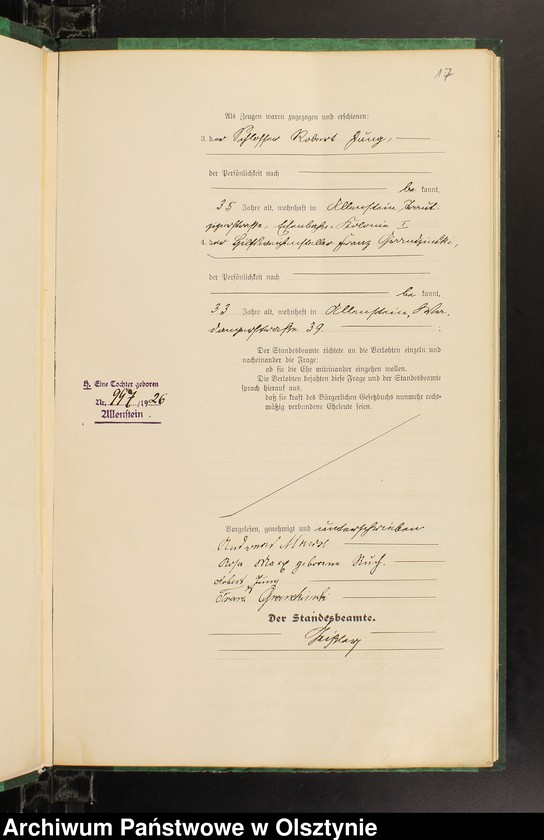 17
Als Zeugen waren zugezogen und erschienen:
3. der Schlosser Robert Jung,
der Persönlichkeit nach
be kannt,
35 Jahre alt, wohnhaft in Allenstein,
Eisenbahn-Kolonie I
4. der Franz
der Persönlichkeit nach
be kannt,
33 Jahre alt, wohnhaft in Allenstein,
39. ;
Der Standesbeamte richtete an die Verlobten einzeln und
nacheinander die Frage:
ob sie die Ehe miteinander eingehen wollen.
Die Verlobten bejahten diese Frage und der Standesbeamte
sprach hierauf aus,
daß sie kraft des Bürgerlichen Gesetzbuchs nunmehr recht-
mäßig verbundene Eheleute seien.
Eine Tochter geboren
Nr. 947 /1926
Allenstein.
Vorgelesen, genehmigt und unterschrieben
Andreas
Rosa geborene Ruch.
Robert Jung
Franz
Der Standesbeamte.
Archiwum Państwowe w Olsztynie